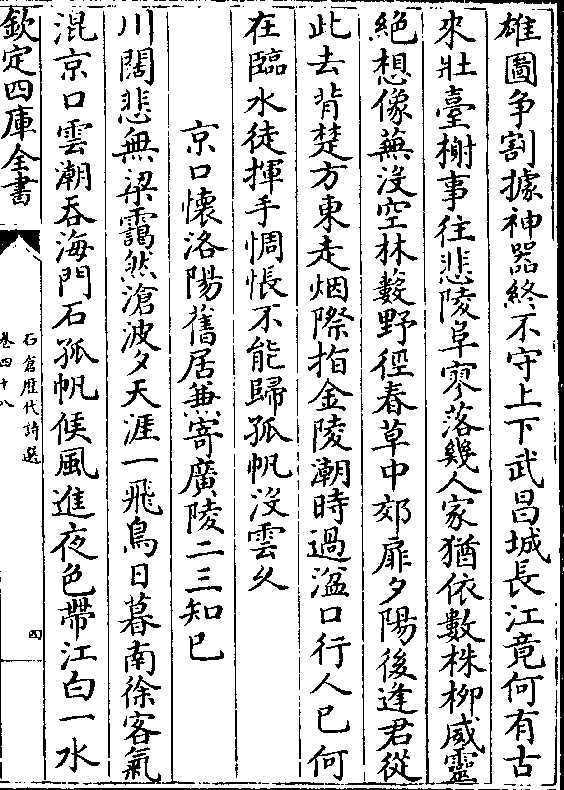 雄圖争割據神器終不守上下武昌城長江竟何有古
來壯臺榭事往悲陵阜寥落幾人家猶依數株柳威靈
絶想像蕪没空林藪野徑春草中郊扉夕陽後逢君從
此去背楚方東走烟際指金陵潮時過湓口行人已何
在臨水徒揮手惆悵不能歸孤帆没雲乆
京口懐洛陽舊居兼寄廣陵二三知已
川闊悲無梁靄然滄波夕天涯一飛鳥日暮南徐客氣
混京口雲潮吞海門石孤帆候風進夜色帶江白一水
欽定四庫全書
石倉歴代詩選
卷四十八
四